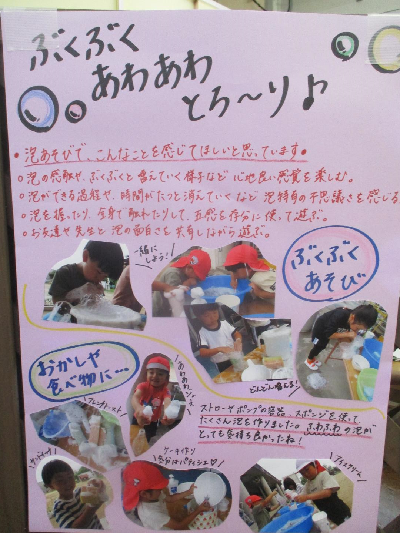 ぶくぶく
あわあわ
とろ〜り♪
•泡あそびで、こんなことを感じてほしいと思っています•
○泡の感触や、ぶくぶくと増えていく様子など心地良い感覚を楽しむ。
○泡ができる過程や、時間がたつと消えていくなど泡特有の不思議さを感じる
○泡を握ったり、全身で触れたりして、五感を存分に使って遊ぶ。
○お友達や先生と泡の面白さを共有しながら遊ぶ。
一緒に
しよう!
ぶくぶく
あそび
どんどん増える!
おかしや
食べ物に…
あわあわ
ストローやポンプの容器、スポンジを使って
たくさん泡を作りました。ふわふわの泡が
とっても気持ち良かったね!
ケーキ作り
気分はパティシエ♡
アイスクリーム